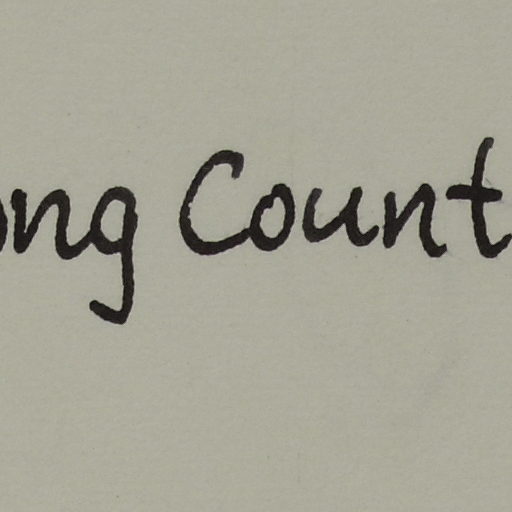 ong Count